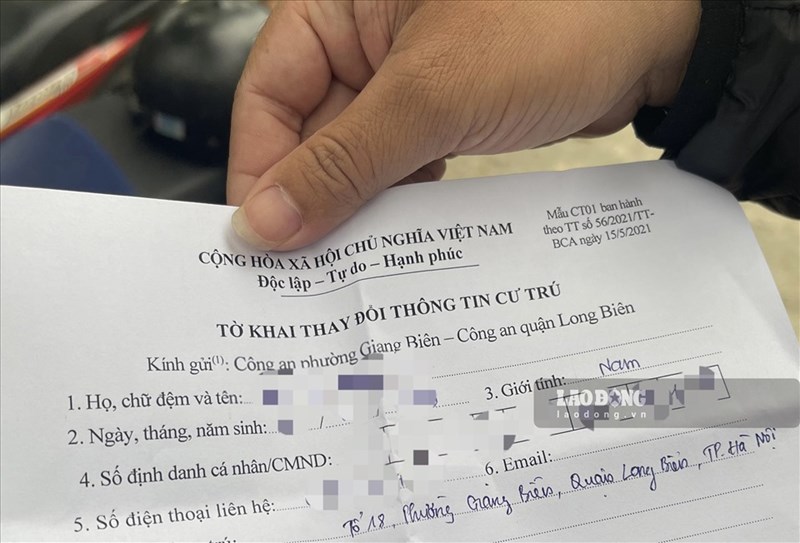 Mẫu CT01 ban hành
theo TT số 56/2021/TT-
BCA ngày 15/5/2021
CỘNG HÒA XÃ HỘI CHỦ NGHĨA VIỆT NAM
Độc lập – Tự do – Hạnh phúc
TỜ KHAI THAY ĐỔI THÔNG TIN CƯ TRÚ
Kính gửi(1): Công an phường Giang Biên – Công an quận Long Biên
1. Họ, chữ đệm và tên:
2. Ngày, tháng, năm sinh: 3. Giới tính: Nam
LAO ĐỘNG
laodong.vn
4. Số định danh cá nhân/CMND:
5. Số điện thoại liên hệ: 6. Email:
Tổ 18, Phường Giang Biên, Quận Long Biên, TP. Hà Nội